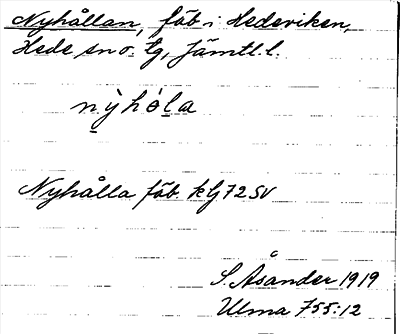 Nyhållan, fäb i Hedeviken,
Hede sn o. tg, Jämtl. l.
nỳhòla
Nyhålla fäb. klg 72 SV
S. Åsander 1919
Ulma 755:12